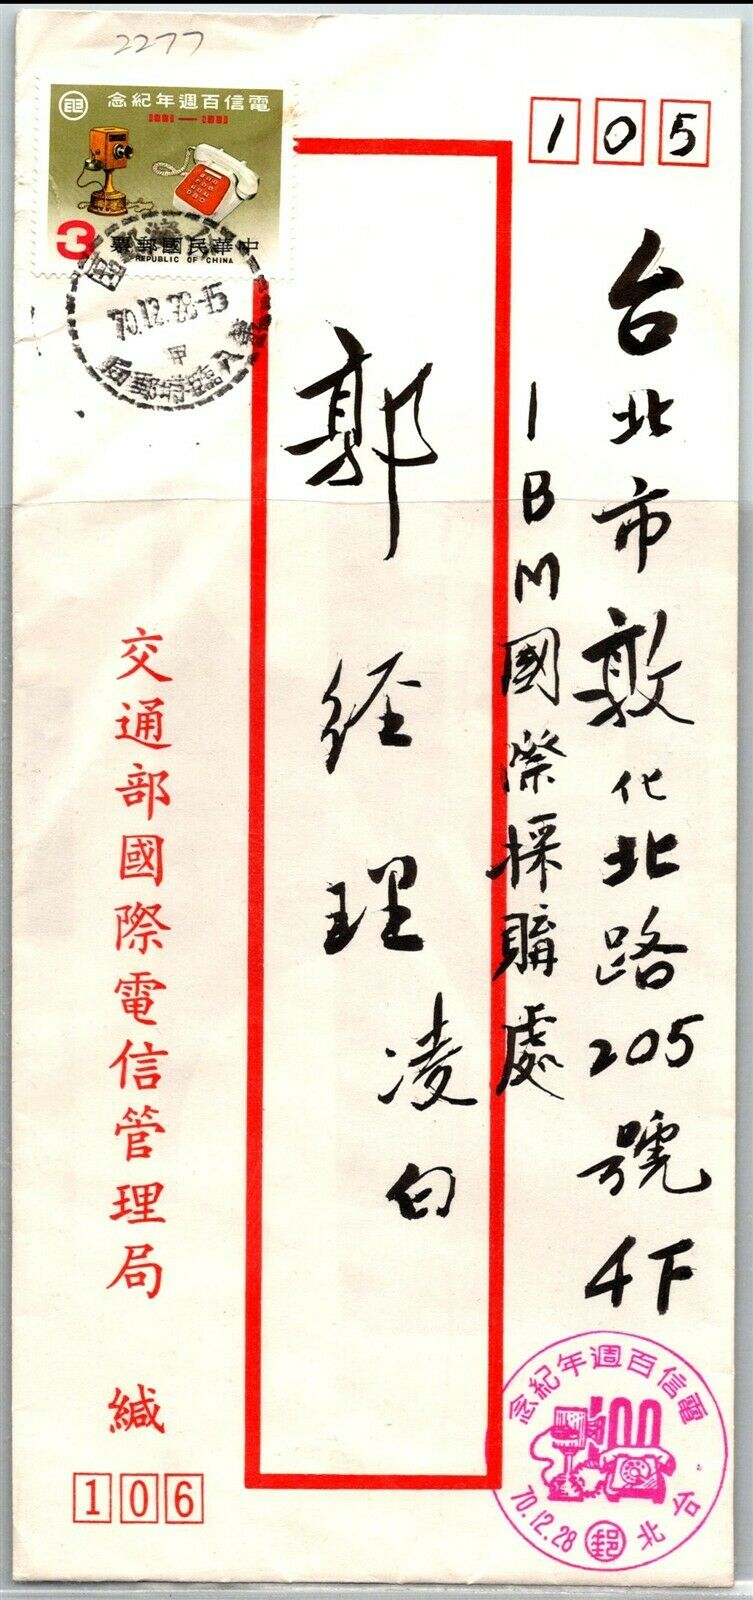 2277
電信百週年紀念
1881—1981
3
中華民國郵票
REPUBLIC OF CHINA
70.12.28-15
甲
第八臨時郵局
105
台北市敦化北路205號4F
IBM國際採購處
郭經理
凌白
交通部國際電信管理局 緘
106
電信百週年紀念
100
台北
70.12.28
郵